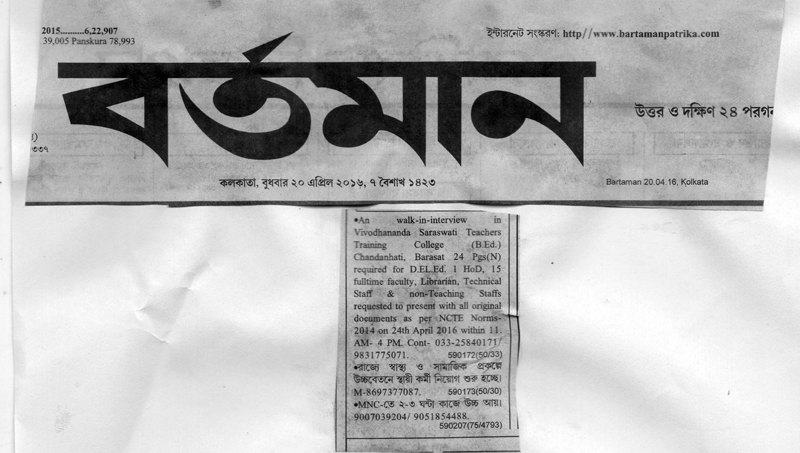 2015...........6,22,907
39,005 Panskura 78,993
ইন্টারনেট সংস্করণ: http//www.bartamanpatrika.com
বর্তমান
উত্তর ও দক্ষিণ ২৪ পরগন
৩৩৭
কলকাতা, বুধবার ২০ এপ্রিল ২০১৬, ৭ বৈশাখ ১৪২৩
Bartaman 20.04.16, Kolkata
•An walk-in-interview in
Vivodhananda Saraswati Teachers
Training College (B.Ed.)
Chandanhati, Barasat 24 Pgs(N)
required for D.EL.Ed. 1 HoD, 15
fulltime faculty, Librarian, Technical
Staff & non-Teaching Staffs
requested to present with all original
documents as per NCTE Norms-
2014 on 24th April 2016 within 11.
AM- 4 PM. Cont- 033-25840171/
9831775071. 590172(50/33)
•রাজ্যে স্বাস্থ্য ও সামাজিক প্রকল্পে
উচ্চবেতনে স্থায়ী কর্মী নিয়োগ শুরু হচ্ছে।
M-8697377087. 590173(50/30)
•MNC-তে ২-৩ ঘন্টা কাজে উচ্চ আয়।
9007039204/ 9051854488.
590207(75/4793)